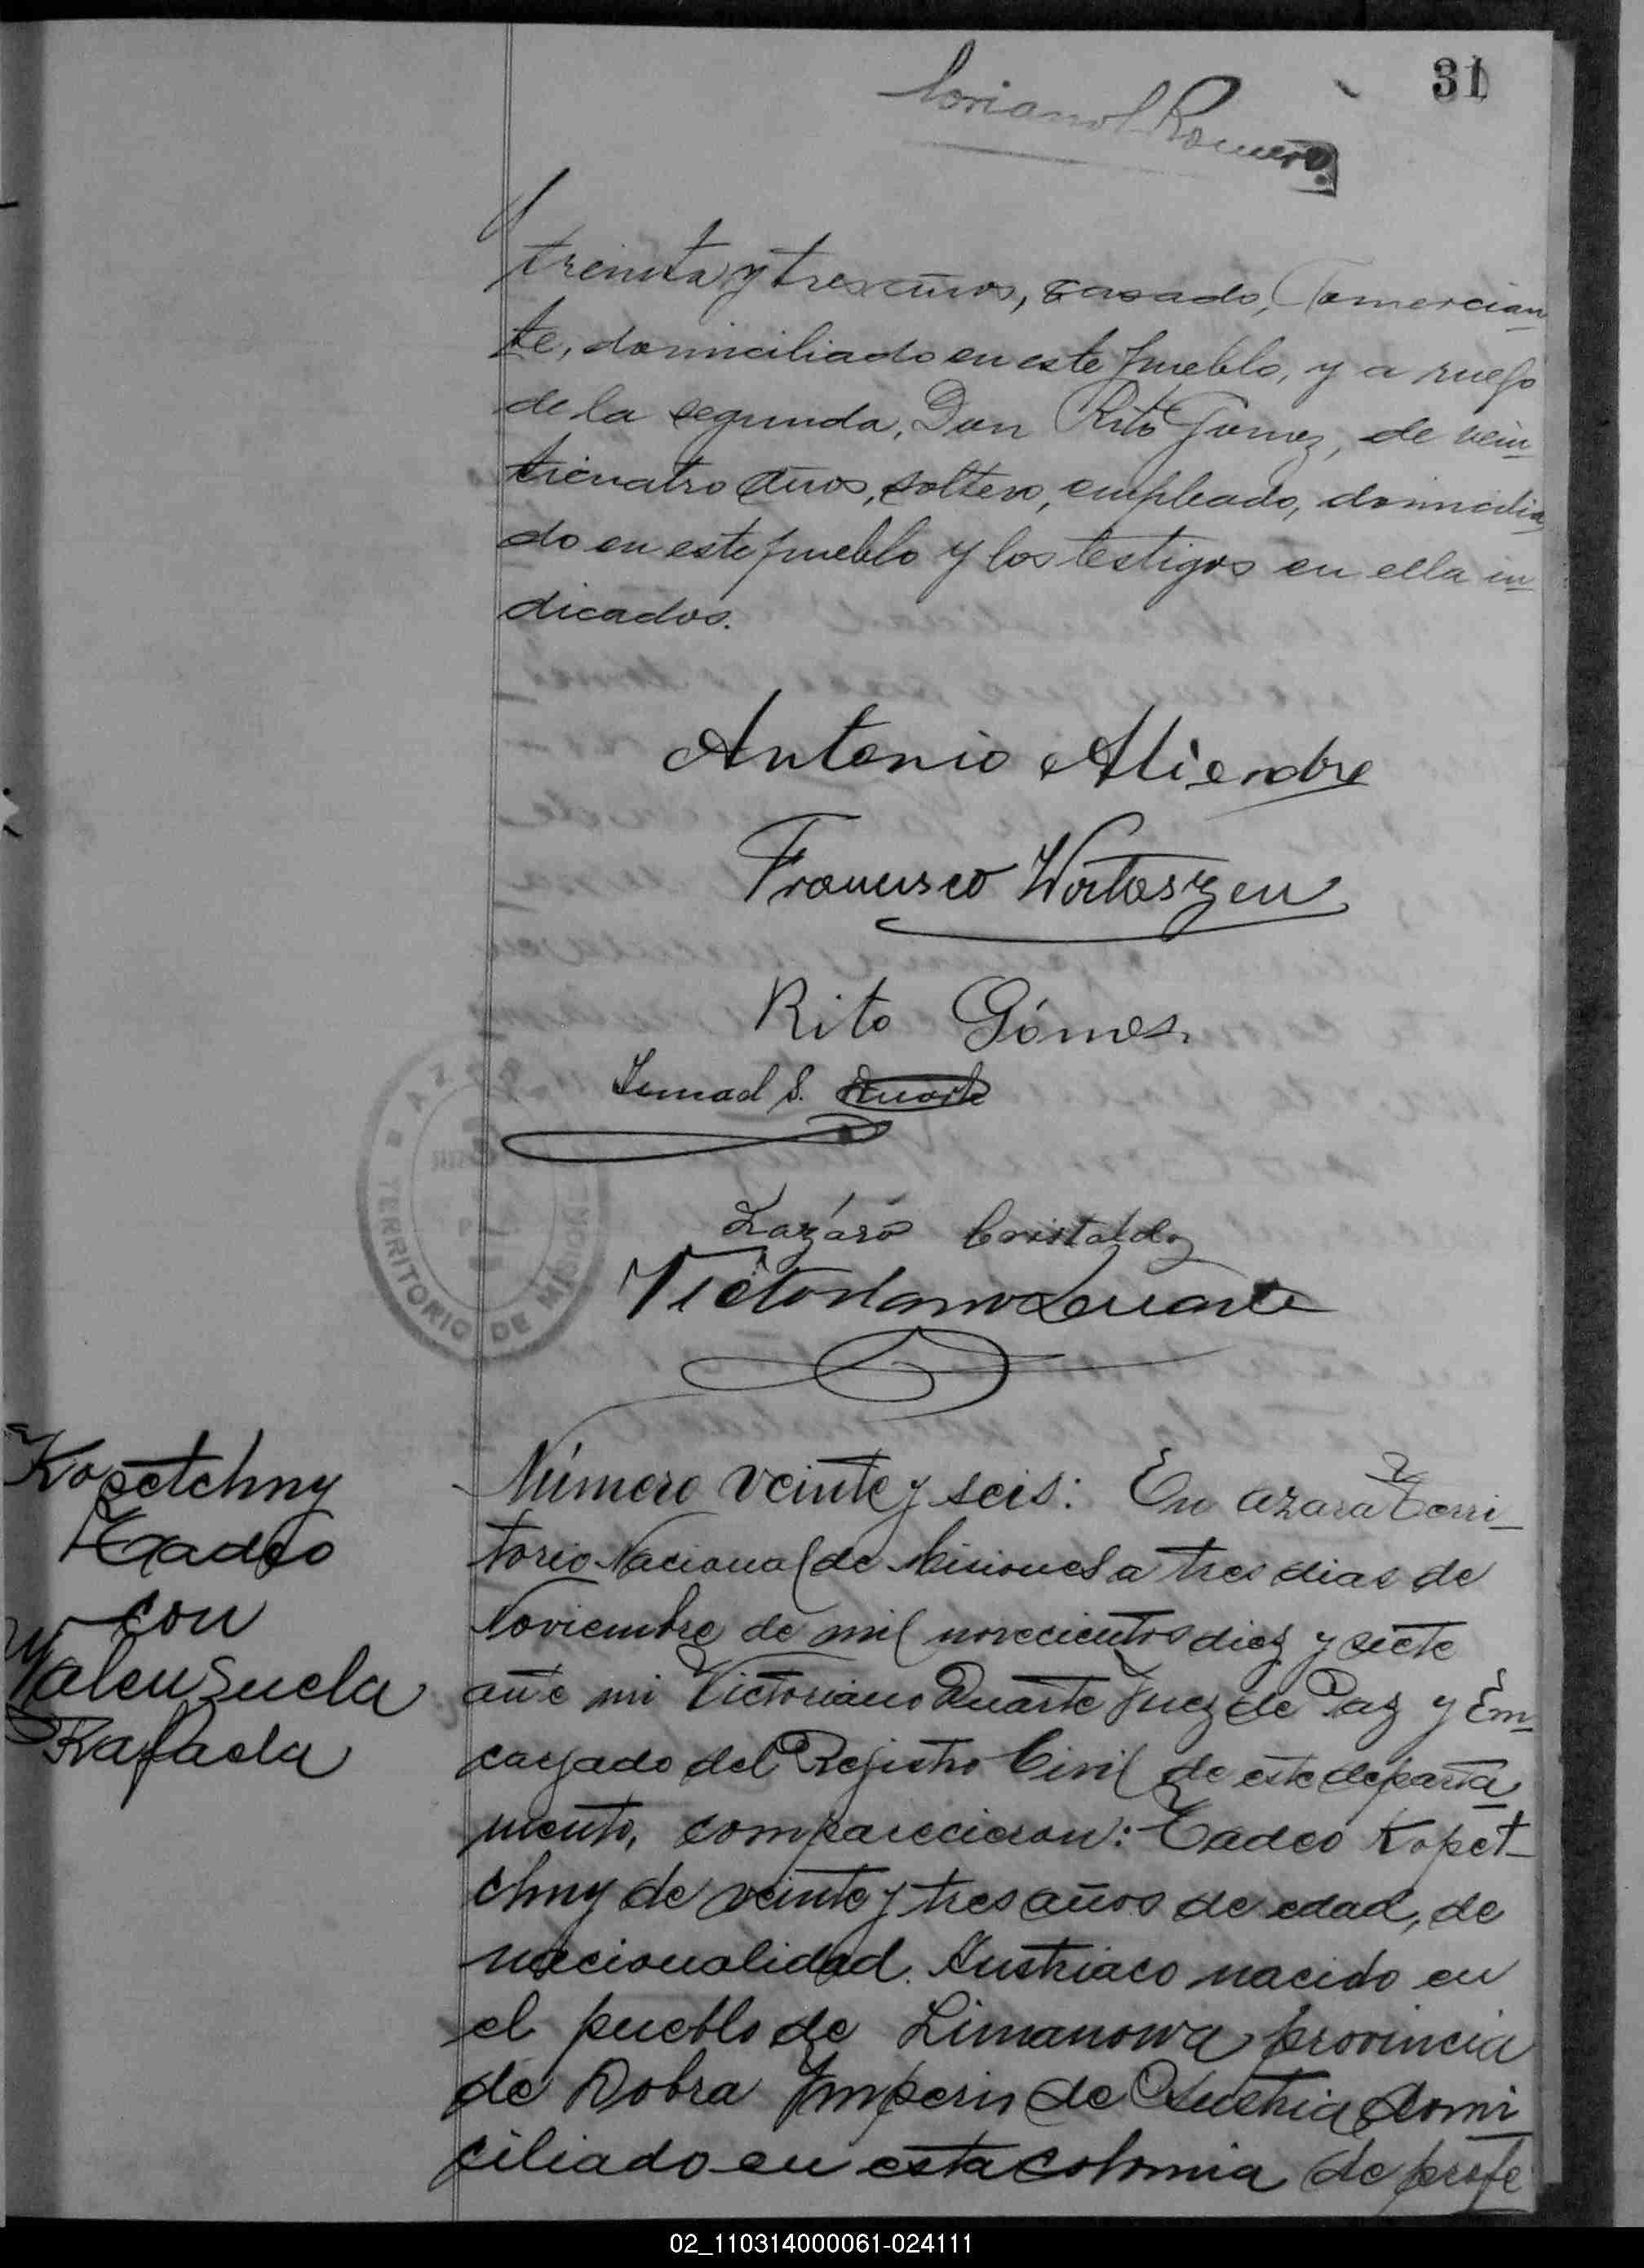 31
Romero
treinta y tres años, casado, Comercian
te, domiciliado en este pueblo, y a ruego
de la segunda, Don Rito Gomez, de vein
ticuatro años, soltero, empleado, domicilia
do en este pueblo y los testigos en ella in
dicados.
Antonio Aliendre
Francisco Wortaszen
Rito Gómes
S. Duarte
Lazáro Cristaldo
Victoriano Duarte
AZARA
TERRITORIO DE MISIONES
Kopetchny
Tadeo
con
Valensuela
Rafaela
Número veinte y seis: En Azara Terri-
torio Nacional de Misiones a tres dias de
Noviembre de mil novecientos diez y siete
ante mi Victoriano Duarte Juez de Paz y En
cargado del Registro Civil de este departa
mento, comparecieron: Tadeo Kopet-
chny de veinte y tres años de edad, de
nacionalidad Austriaco nacido en
el pueblo de Limanowa provincia
de Dobra Imperio de Austria domi
ciliado en esta colonia de profe
02_110314000061-024111